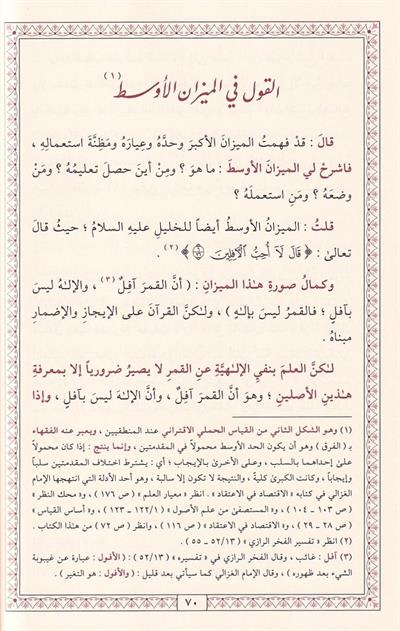 القول في الميزان الأوسط (١)
قالَ : قدْ فهمتُ الميزانَ الأكبرَ وحدَّهُ وعِيارَهُ ومَظِنَّةَ استعمالِهِ ،
فاشرحْ لي الميزانَ الأوسطَ : ما هوَ ؟ ومِنْ أينَ حصلَ تعليمُهُ ؟ ومَنْ
وضعَهُ ؟ ومَنِ استعملَهُ ؟
قلتُ : الميزانُ الأوسطُ أيضاً للخليلِ عليهِ السلامُ ؛ حيثُ قالَ
تعالىٰ : ﴿ قَالَ لَآ أُحِبُّ ٱلْآفِلِينَ ﴾ (٢) .
وكمالُ صورةِ هـٰذا الميزانِ : ( أنَّ القمرَ آفِلٌ (٣) ، والإلـٰهُ ليسَ
بآفلٍ ؛ فالقمرُ ليسَ بإلـٰهٍ ) ، ولـٰكنَّ القرآنَ على الإيجازِ والإضمارِ
مبناهُ .
لـٰكنَّ العلمَ بنفيِ الإلـٰهيَّةِ عنِ القمرِ لا يصيرُ ضرورياً إلا بمعرفةِ
هـٰذينِ الأصلينِ ؛ وهوَ أنَّ القمرَ آفلٌ ، وأنَّ الإلـٰهَ ليسَ بآفلٍ ، وإذا
(١) وهو الشكل الثاني من القياس الحملي الاقتراني عند المنطقيين ، ويعبر عنه الفقهاء
بـ ( الفرق ) وهو أن يكون الحد الأوسط محمولاً في المقدمتين ، وإنما ينتج : إذا كان محمولاً
علىٰ إحداهما بالسلب ، وعلى الأخرىٰ بالإيجاب ؛ أي : يشترط اختلاف المقدمتين سلباً
وإيجاباً ، وكانت الكبرىٰ كليةً ، والنتيجة لا تكون إلا سالبة ، وهو أحد الأدلة التي انتهجها الإمام
الغزالي في كتابه « الاقتصاد في الاعتقاد » . انظر « معيار العلم » ( ص ١٧٦ ) ، و« محك النظر »
( ص ١٠٣ - ١٠٤ ) ، و« المستصفىٰ من علم الأصول » ( ١٢٢/١ - ١٢٣ ) ، و« أساس القياس »
( ص ٢٨ - ٢٩ ) ، و« الاقتصاد في الاعتقاد » ( ص ١١٦ ) ، وانظر ( ص ٧٢ ) من هذا الكتاب .
(٢) انظر « تفسير الفخر الرازي » ( ٥٢/١٣ - ٥٥ ) .
(٣) آفل : غائب ، وقال الفخر الرازي في « تفسيره » ( ٥٢/١٣ ) : ( الأفول : عبارة عن غيبوبة
الشيء بعد ظهوره ) ، وقال الإمام الغزالي كما سيأتي بعد قليل : ( والأفول : هو التغير ) .
٧٠